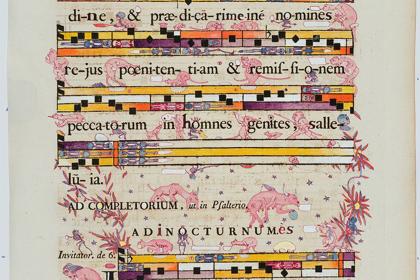 di-ne, & præ-di-ça-rime iné no-mines
re-jus pœni-ten- ti-am & remiſ-ſi-o-nem
pecca-to-rum in homnes génites salle-
lü- ia.
AD COMPLETORIUM, ut in Pſalterio.
ADINOCTURNUM.es
Invitator. de 6.